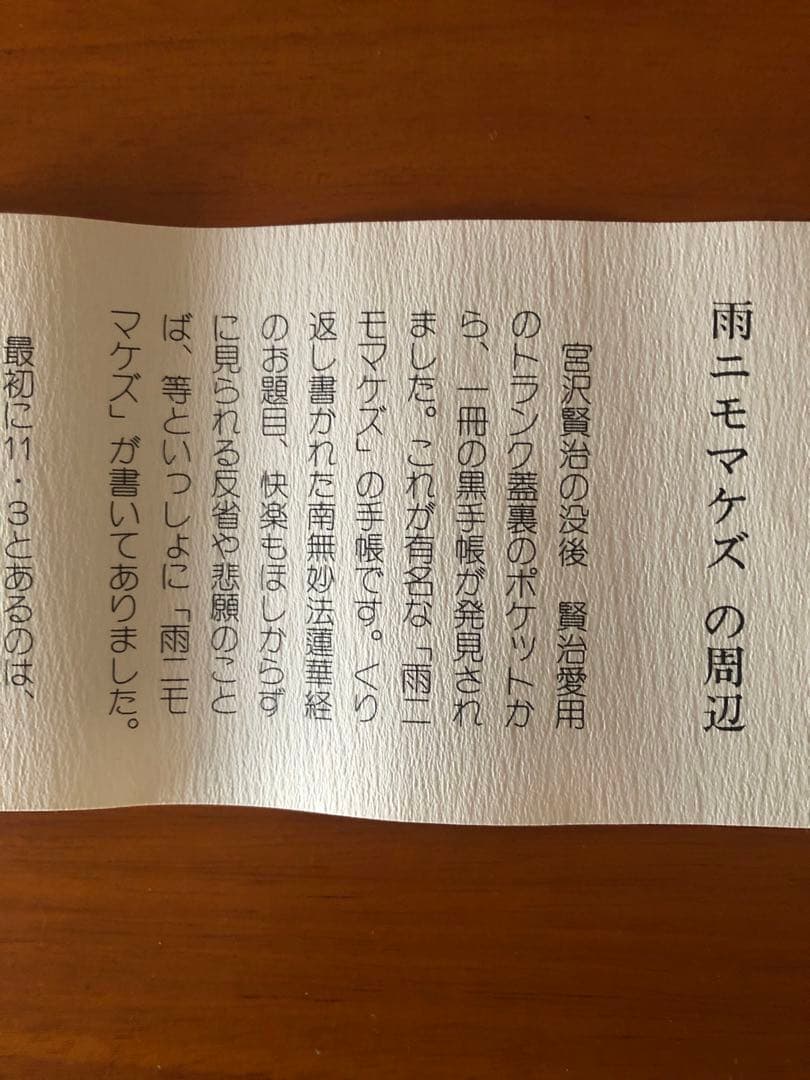 雨ニモマケズ の周辺
宮沢賢治の没後　賢治愛用
のトランク蓋裏のポケットか
ら、一冊の黒手帳が発見され
ました。これが有名な「雨ニ
モマケズ」の手帳です。くり
返し書かれた南無妙法蓮華経
のお題目、快楽もほしからず
に見られる反省や悲願のこと
ば、等といっしょに「雨ニモ
マケズ」が書いてありました。
最初に11・3とあるのは、